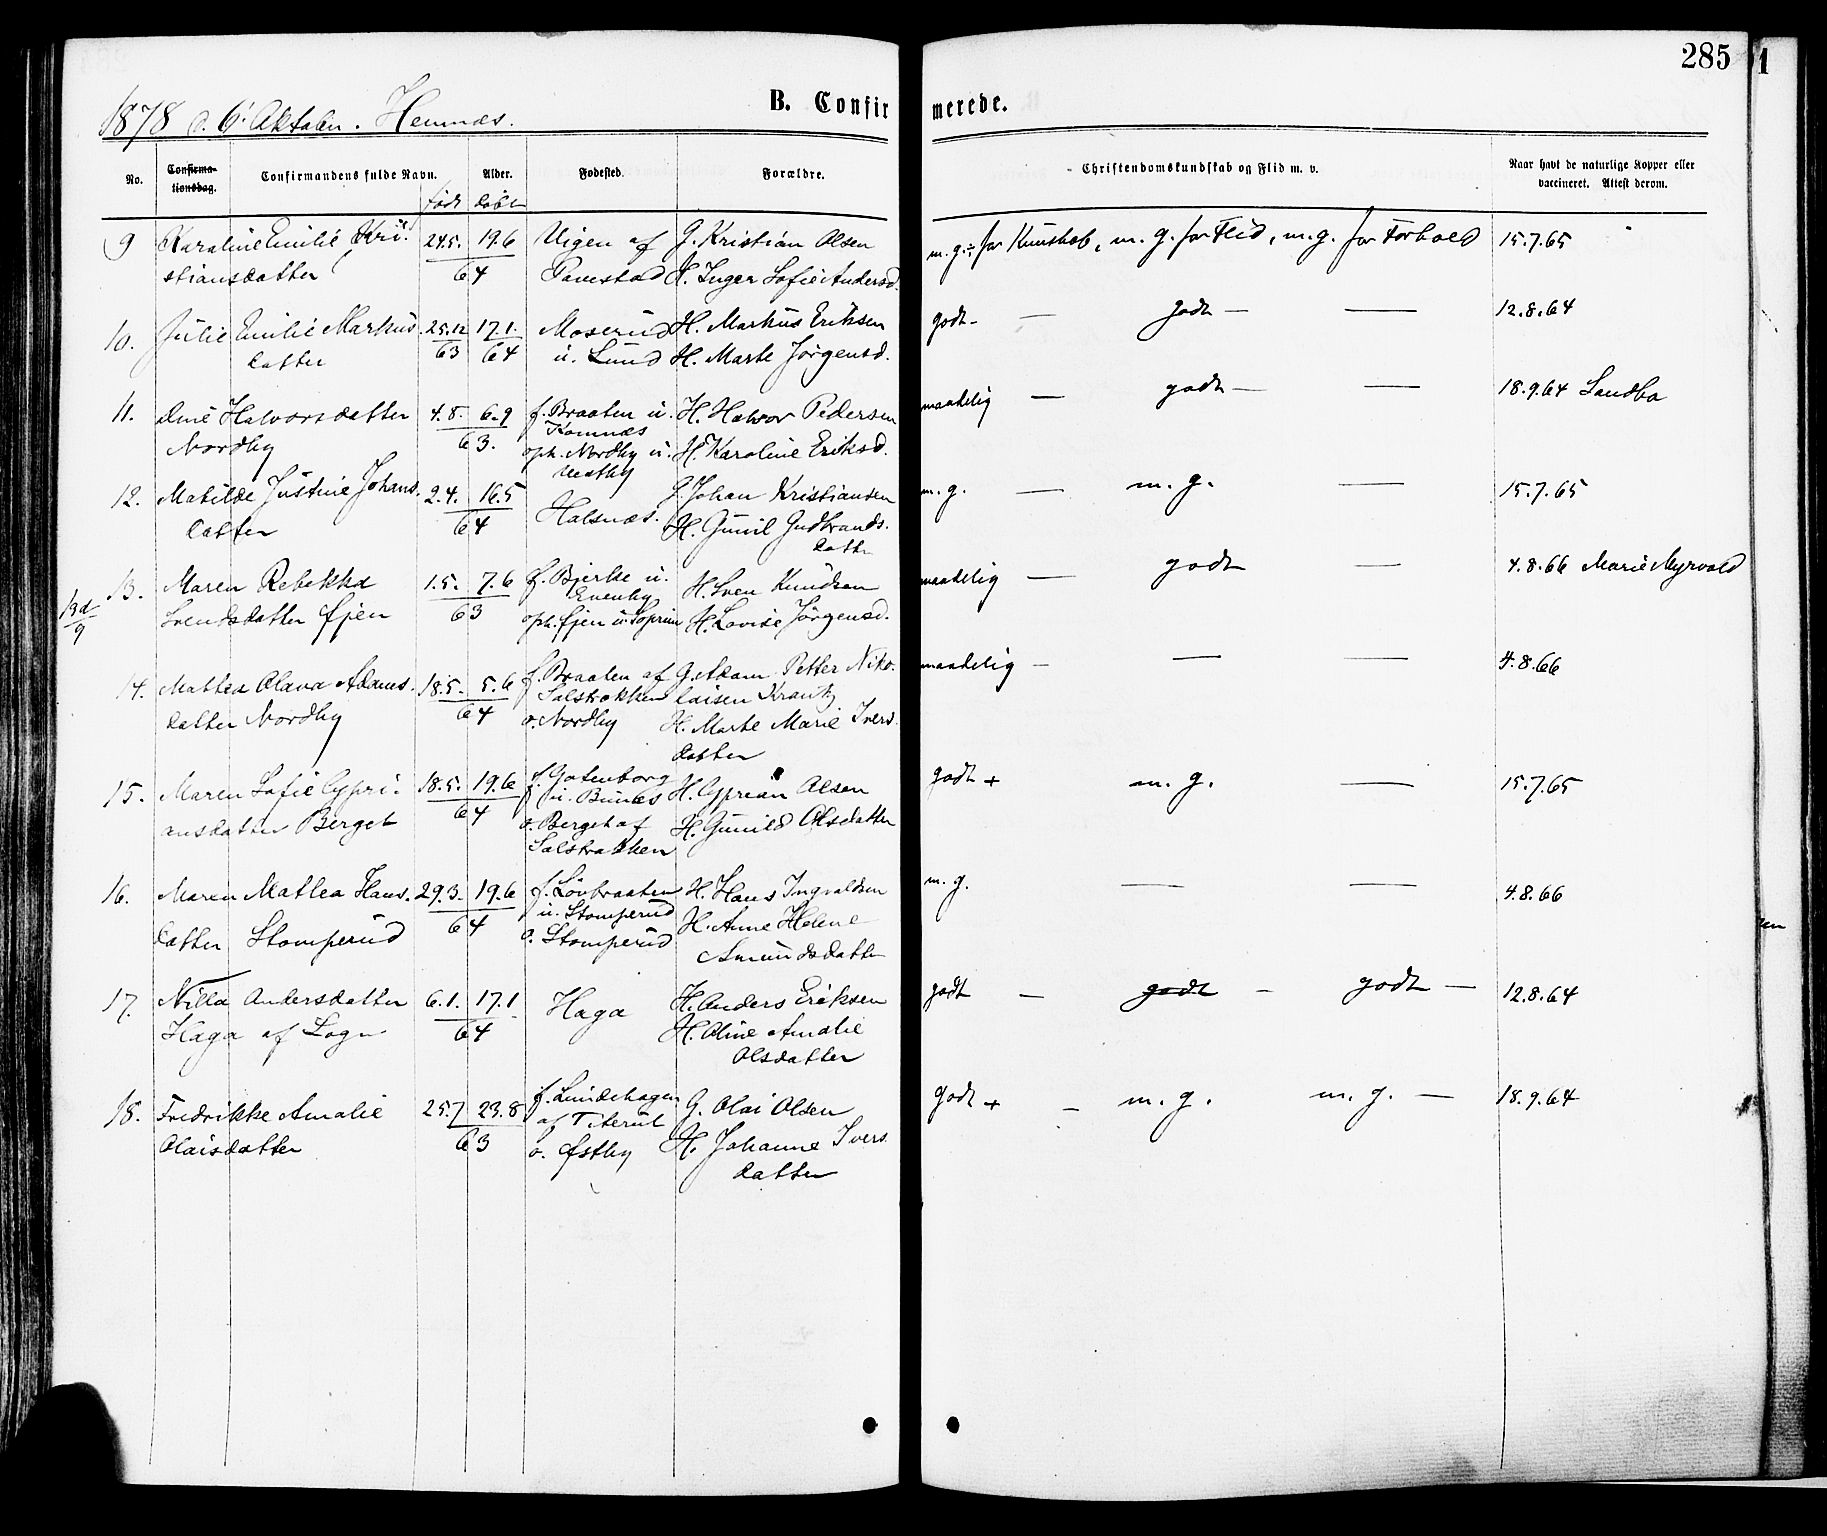 285
1
1878 d. 6' Oktober. Hemnæs.
B. Confirmerede.
No.
Confirmationsdag.
Confirmandens fulde Navn.
Alder.
født døbt
Fødested.
Forældre.
Christendomskundskab og Flid m. v.
Naar havt de naturlige Kopper eller
vaccineret. Attest derom.
9 Karoline Emilie Kri- 24.5. 19.6 Vigen af G. Kristian Olsen m.g.÷ for Kunskab, m.g. for Flid, m.g. for Forhold 15.7.65
stiansdatter 64 H. Inger Sofie Andersd.
10. Julie Emilie Markus 25.12 17.1. Moserud H. Markus Eriksen godt - — godt — — 12.8.64
datter 63 64 u. Lund H. Marte Jørgensd.
11. Halvorsdatter 4.8. 6.9 f. Braaten u. H. Halvor Pedersen maadelig — godt — — 18.9.64 Sandbo
Nordby 63. Komnæs
oph. Nordby u. H. Karoline Eriksd.
Vestby
12. Matilde Justine Johans 2.4. 16.5 Halsnæs. G. Johan Kristiansen m.g. — m.g. — 15.7.65
datter 64 H. Gunil Gudbrands-
datter
13. Maren Rebekka 1.5. 7.6 f. Bjerke u. H. Sven Knudsen maadelig — godt — 4.8.66 Marie Myrvold
13d/9 Svendsdatter Ejen 63 Evenby
oph. Ejen u. H. Lovise Jørgensd.
14. Mathea Olava Adams- 18.5. 5.6 f. Braaten af G. Adam Petter Niko- maadelig — — — 4.8.66
datter Nordby 64 Salstrokken laisen Krantz
o. Nordby H. Marte Marie Ivers
datter
15. Maren Sofie Cypri- 18.5. 19.6 f. Gotenborg H. Cyprian Olsen godt + m.g. — 15.7.65
ansdatter Berget 64 u. Bunes
o. Berget af H. Gunild Olsdatter
Salstrokken
16. Maren Mathea Hans- 29.3. 19.6 f. Løvbraaten H. Hans Ingvaldsen m.g. — — 4.8.66
datter Stomperud 64 u. Stomperud H. Anne Helene
o. Stomperud Amundsdatter
17. Nilla Andersdatter 6.1. 17.1 Haga H. Anders Eriksen godt — godt — godt — 12.8.64
Haga af Sogn 64 H. Oline Amalie
Olsdatter
18. Fredrikke Amalie 25.7 23.8 f. Lundehagen G. Olai Olsen godt + — m.g. m.g. — 18.9.64
Olaisdatter 63 af Titerud
o. Østby H. Johanne Ivers
datter
en